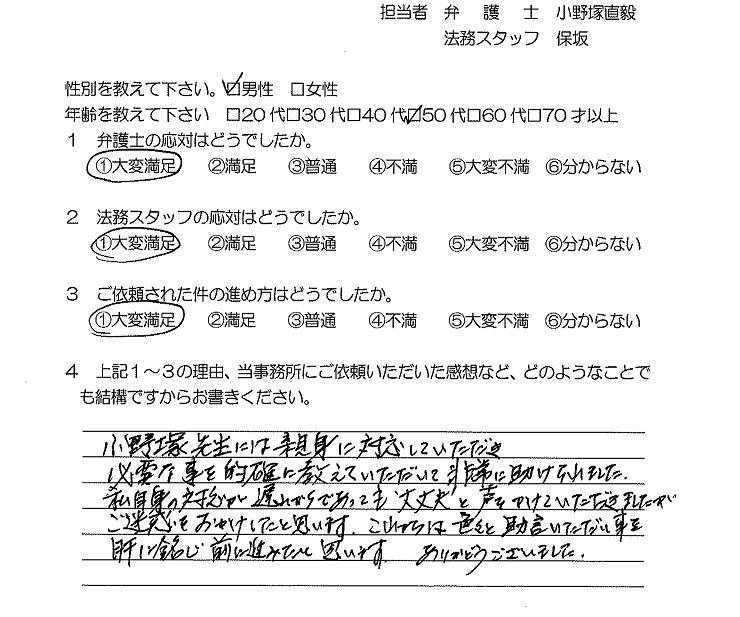 担当者 弁 護 士 小野塚直毅
法務スタッフ 保坂
性別を教えて下さい。☑男性 □女性
年齢を教えて下さい □20代□30代□40代☑50代□60代□70才以上
1 弁護士の応対はどうでしたか。
①大変満足 ②満足 ③普通 ④不満 ⑤大変不満 ⑥分からない
2 法務スタッフの応対はどうでしたか。
①大変満足 ②満足 ③普通 ④不満 ⑤大変不満 ⑥分からない
3 ご依頼された件の進め方はどうでしたか。
①大変満足 ②満足 ③普通 ④不満 ⑤大変不満 ⑥分からない
4 上記1～3の理由、当事務所にご依頼いただいた感想など、どのようなことで
も結構ですからお書きください。
小野塚先生には親身に対応していただき
必要な事を的確に教えていただいて非常に助けられました.
私自身の対応が遅れがちであっても"大丈夫"と声をかけていただきましたが
ご迷惑をおかけしたと思います. これからは色々と助言いただいた事を
肝に銘じ前に進みたいと思います. ありがとうございました.